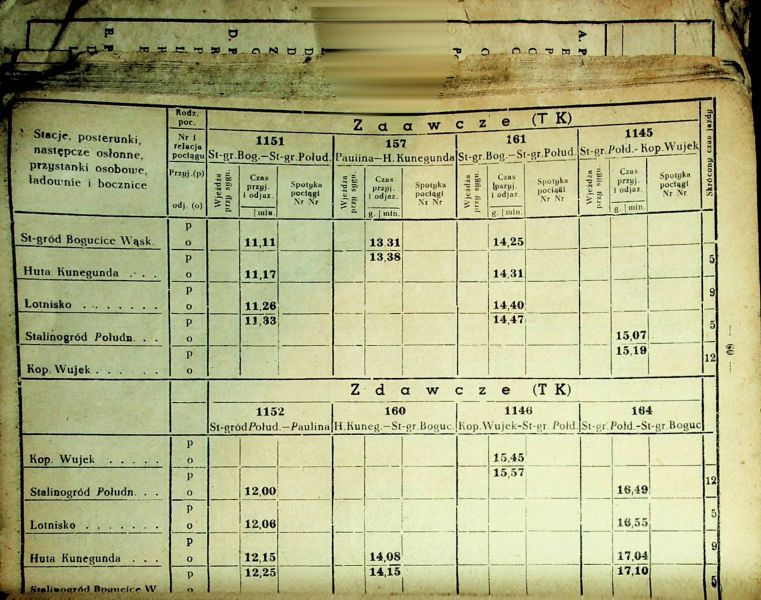 Stacje, posterunki,
następcze osłonne,
przystanki osobowe,
ładownie i bocznice
Rodz. poc.
Nr i relacja pociągu
Przyj.(p)
odj. (o)
Zdawcze (TK)
1151 157 161 1145
St-gr.Bog.—St-gr.Połud. Paulina—H. Kunegunda St-gr.Bog.—St-gr.Połud. St-gr.Połd.- Kop.Wujek
Skrócony czas jazdy
Wjeżdża przy sygn. Czas przyj. i odjaz. Spotyka pociągi Nr Nr Wjeżdża przy sygn. Czas przyj. i odjaz. Spotyka pociągi Nr Nr Wjeżdża przy sygn. Czas przyj. i odjaz. Spotyka pociągi Nr Nr Wjeżdża przy sygn. Czas przyj. i odjaz. Spotyka pociągi Nr Nr
min. g. min. g. min. g. min.
p
St-gród Bogucice Wąsk. o 11,11 13.31 14,25
p 13,38 5
Huta Kunegunda . . . o 11,17 14,31
p 9
Lotnisko . . . . . . . o 11,26 14,40
p 11,33 14,47 5
Stalinogród Połudn. . . o 15,07
p 15,19 12
Kop. Wujek . . . . . . o
— 60 —
Zdawcze (TK)
1152 160 1146 164
St-gród Połud.—Paulina H.Kuneg.—St-gr.Boguc. Kop.Wujek-St-gr. Połd. St-gr.Połd.-St-gr.Boguc
p
Kop. Wujek . . . . . o 15,45
p 15,57 12
Stalinogród Połudn. . . o 12,00 16,49
p 5
Lotnisko . . . . . . . o 12,06 16,55
p 9
Huta Kunegunda . . . o 12,15 14,08 17,04
p 12,25 14,15 17,10 5
Stalinogród Bogucice W o